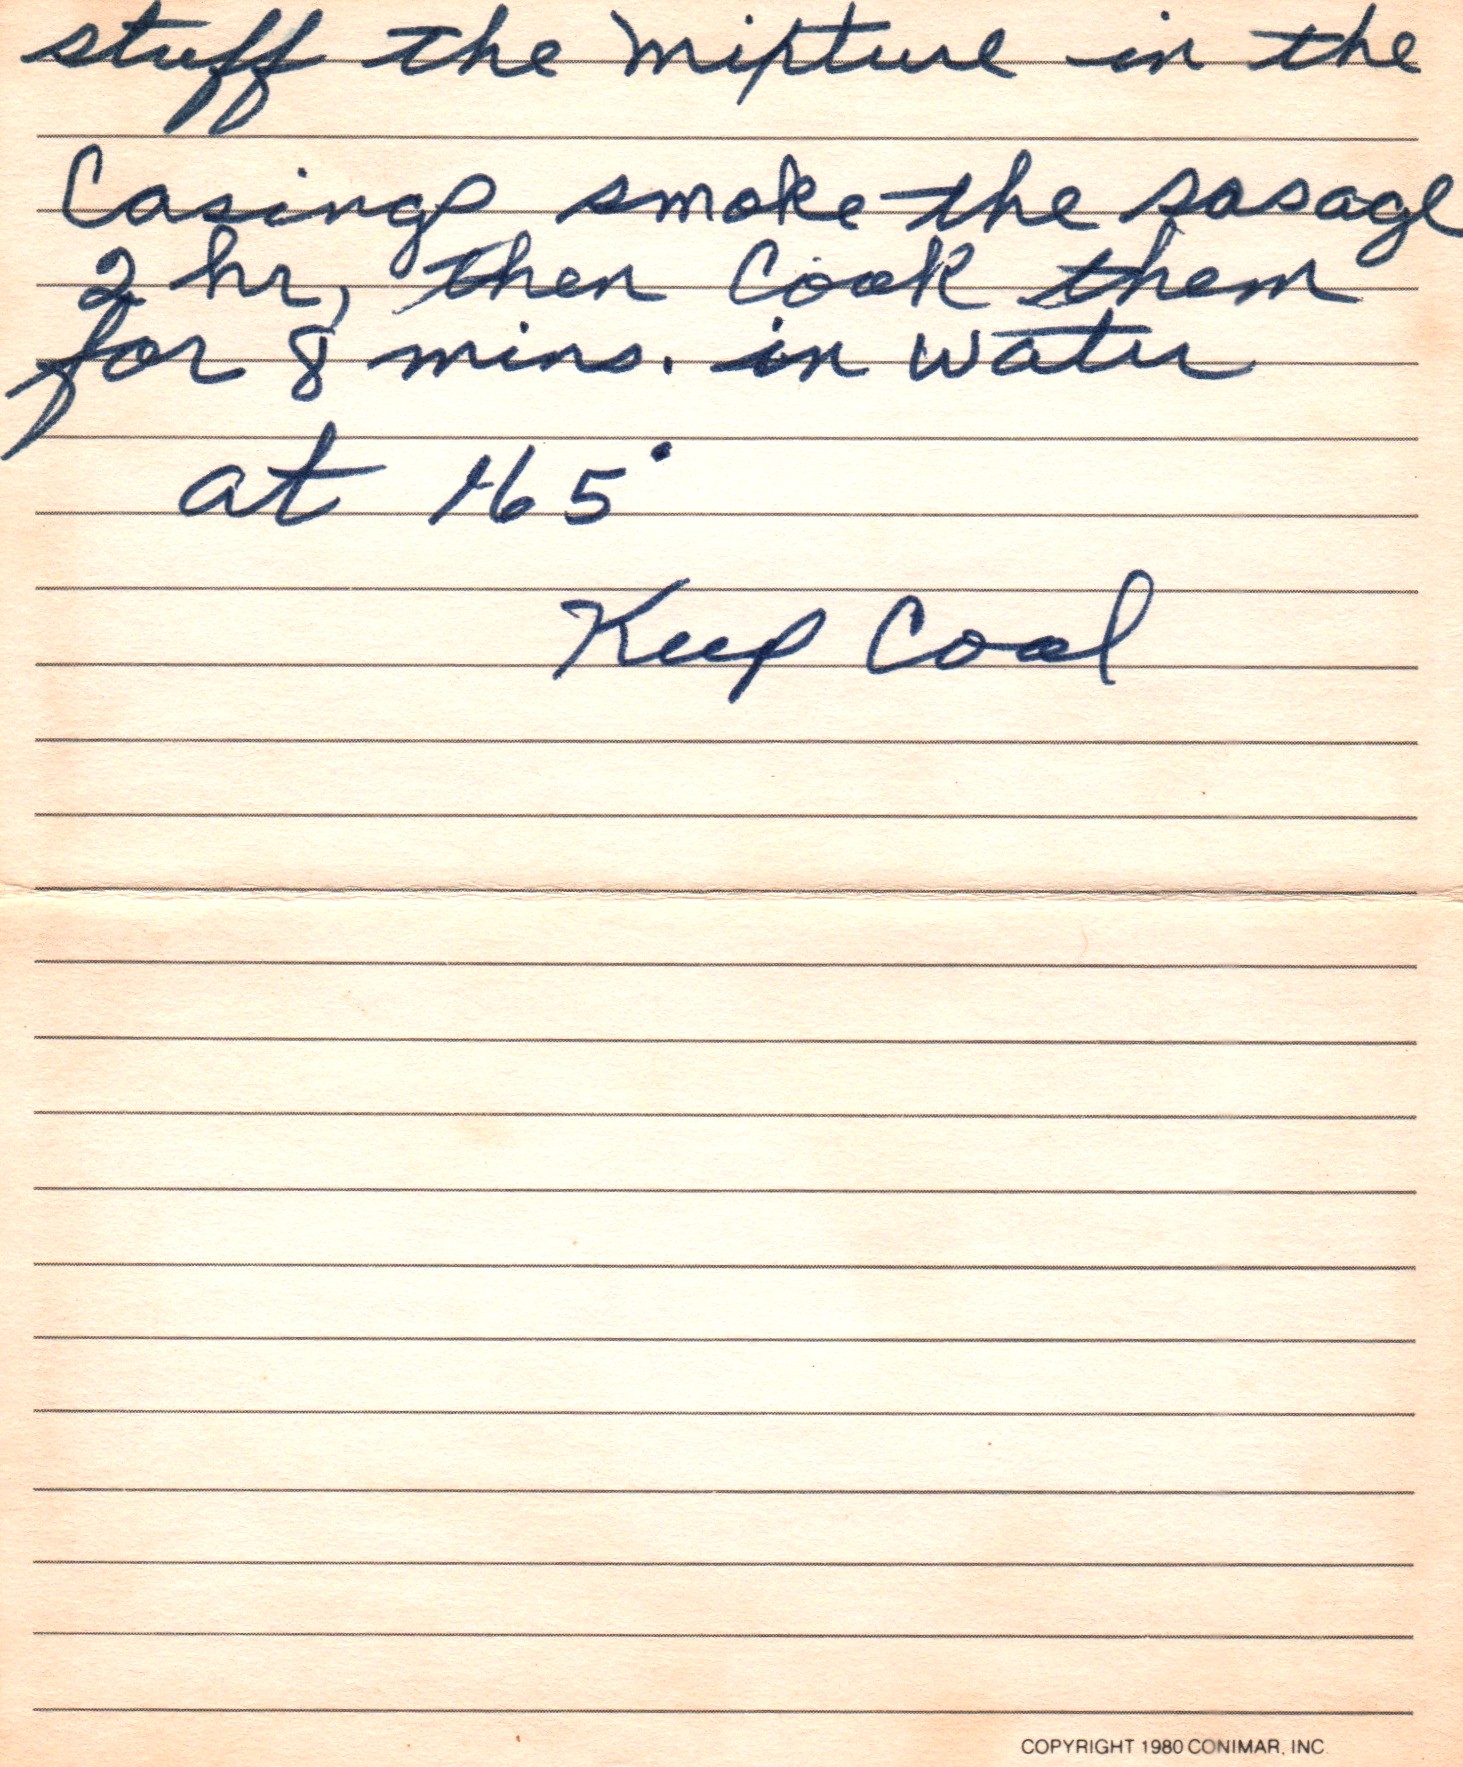 stuff the mixture in the
Casings smoke the sasage
2 hr, then Cook them
for 8 mins. in water
at 165°
Keep Cool
COPYRIGHT 1980 CONIMAR, INC.